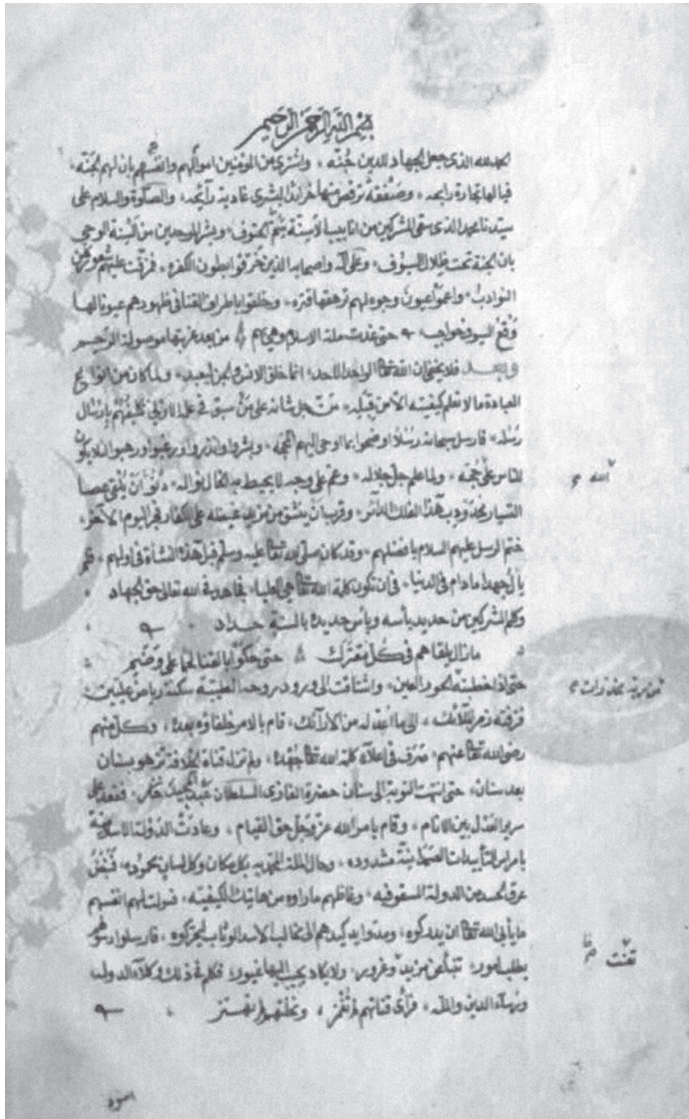 بسم الله الرحمن الرحيم
الحمد لله الذي جعل الجهاد للدين جنة واشترى من المؤمنين اموالهم وانفسهم بان لهم الجنة
فيالها تجارة رابحة وصفقة ترقص منها والصلوة والسلام على
سيدنا محمد الذي سقى المشركين من انابيب الاسنة سم الحتوف وبشر الموحدين من السنة الوحي
بان الجنة تحت ظلال السيوف وعلى آله واصحابه الذين
النوادب واعموا عيون وجوه لهم ترهقها قترة وخلقوا باطراف القنا في ظهورهم عيونا لها
وقع السيوف حواجب حتى غدت ملة الاسلام وهي بهم من بعد غربتها موصولة الرحيم
وبعد فلا يخفى ان الله تعالى الواحد الاحد انما خلق الانس والجن ليعبد ولما كان من انواع
العبادة ما لا تعلم كيفيته الا من قبله من جل شانه على من سبق في علمه الازلي تكليفهم بارسال
رسله فارسل سبحانه رسلا اوضحوا بما اوحى اليهم الحجة وبشروا وانذروا ورغبوا ورهبوا لئلا يكون
للناس على الله حجة ولما علم جل جلاله وعم على وجه لا يحيط به المقال نواله دنو ان يلقي عصا
التسيار بهذا الفلك الدائر وقرب ان ينشق من مزيد غيظه على الكفار فجر اليوم الآخر
ختم الرسل عليهم السلام بافضلهم وقد كان صلى الله تعالى عليه وسلم قبل هذه النشاة في اولهم فلم
يأل جهدا ما دام في الدنيا في ان تكون كلمة الله تعالى هي العليا فجاهد في الله تعالى حق الجهاد
وكلم المشركين من حديد بأسه وبأس حديده بالسنة حداد
ما زال يلقاهم في كل معترك حتى حكوا بالقنا لحما على وضم
حتى اذا خطبته الحور العين واشتاقت الى ورود روحه الطيبة سكنة رياض عليين
قام بالامر خلفاؤه بعده وكل منهم
رضي الله تعالى عنهم صرف في اعلاء كلمة الله تعالى جهده ولم تزل قناة الخلافة تزهو بسنان
بعد سنان حتى انتهت النوبة الى سنان حضرة الغازي السلطان عبد المجيد خان فقعد على
سرير العدل بين الانام وقام بامر الله عز وجل حق القيام وعادت الدولة الاسلامية
بامراس التأييدات الصمدانية مشدودة وحال الملة المحمدية بكل مكان وكل لسان محمودة فنبض
عرق الحسد من الدولة المسقوفية وغاظهم ما راوه من هاتيك الكيفية فسولت لهم انفسهم
ما يأبى الله تعالى ان يدركوه ومدوا يد كيدهم الى مخالب الاسد الوثاب ليحركوه فارسلوا رسولهم
يطلب امورا تنبأ عن مزيد غرور ولا يكاد يجيب اليها غيور فكلم في ذلك وكلاء الدولة
وبهاء الدين والملة فرأى قناتهم لا تغمز
الله صح
اسود